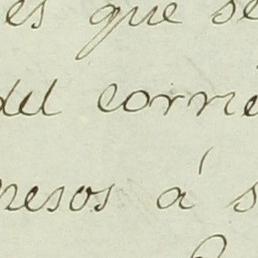 es que se
del corrie
nesos á s